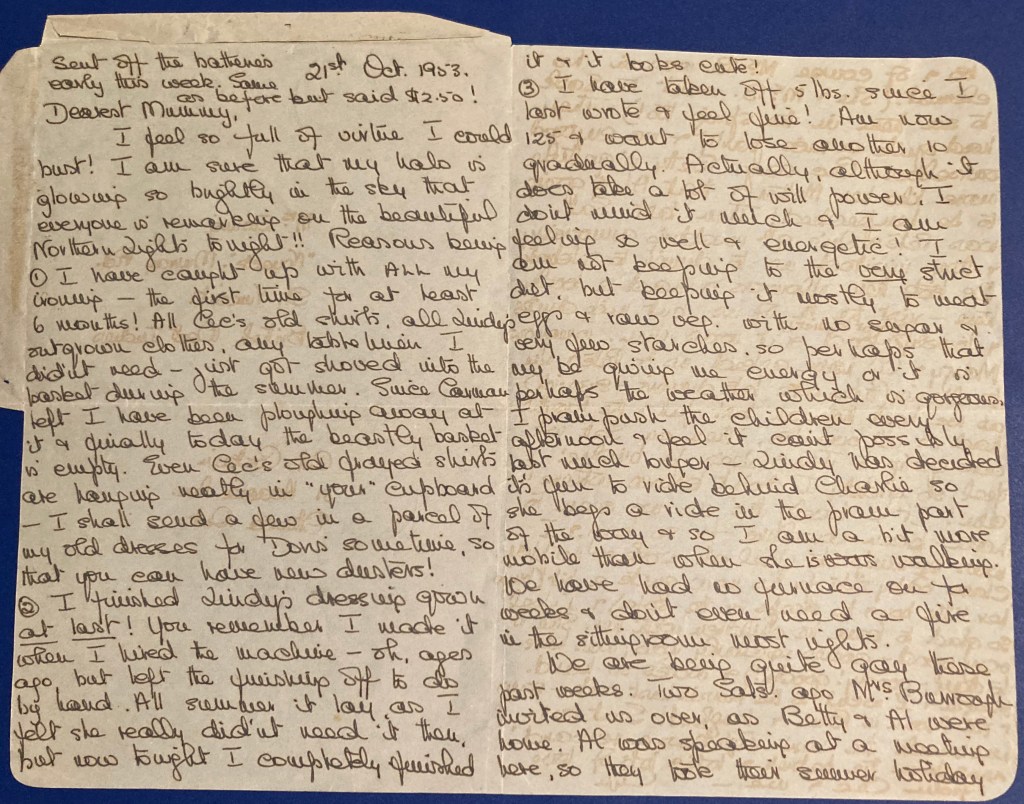 Sent off the batteries
early this week. Same
as before but said $2.50!
21st Oct. 1953.
Dearest Mummy,
I feel so full of virtue I could
bust! I am sure that my halo is
glowing so brightly in the sky that
everyone is remarking on the beautiful
Northern Lights tonight!! Reasons being
① I have caught up with ALL my
ironing – the first time for at least
6 months! All Cec's old shirts, all Lindy's
outgrown clothes, any table linen I
didn't need – just got shoved into the
basket during the summer. Since Carman
left I have been ploughing away at
it & finally today the beastly basket
is empty. Even Cec's old frayed shirts
are hanging neatly in "your" cupboard
– I shall send a few in a parcel of
my old dresses for Doris sometime, so
that you can have new dusters!
② I finished Lindy's dressing gown
at last! You remember I made it
when I hired the machine – oh, ages
ago but left the finishing off to do
by hand. All summer it lay, as I
felt she really didn't need it then,
but now tonight I completely finished
it & it looks cute!
③ I have taken off 5 lbs. since I
last wrote & feel fine! Am now
125 & want to lose another 10
gradually. Actually, although it
does take a lot of will power, I
don't mind it much & I am
feeling so well & energetic! I
am not keeping to the very strict
diet, but keeping it mostly to meat
eggs & raw veg. with no sugar &
very few starches, so perhaps that
my be giving me energy or it is
perhaps the weather which is gorgeous.
I pram push the children every
afternoon & feel it can't possibly
last much longer – Lindy has decided
it's fun to ride behind Charlie so
she begs a ride in the pram part
of the way & so I am a bit more
mobile than when she is walking.
We have had no furnace on for
weeks & don't even need a fire
in the sittingroom most nights.
We are being quite gay these
past weeks. Two Sats. ago Mrs. Burrough
invited us over, as Betty & Al were
home. Al was speaking at a meeting
here, so they took their summer holiday